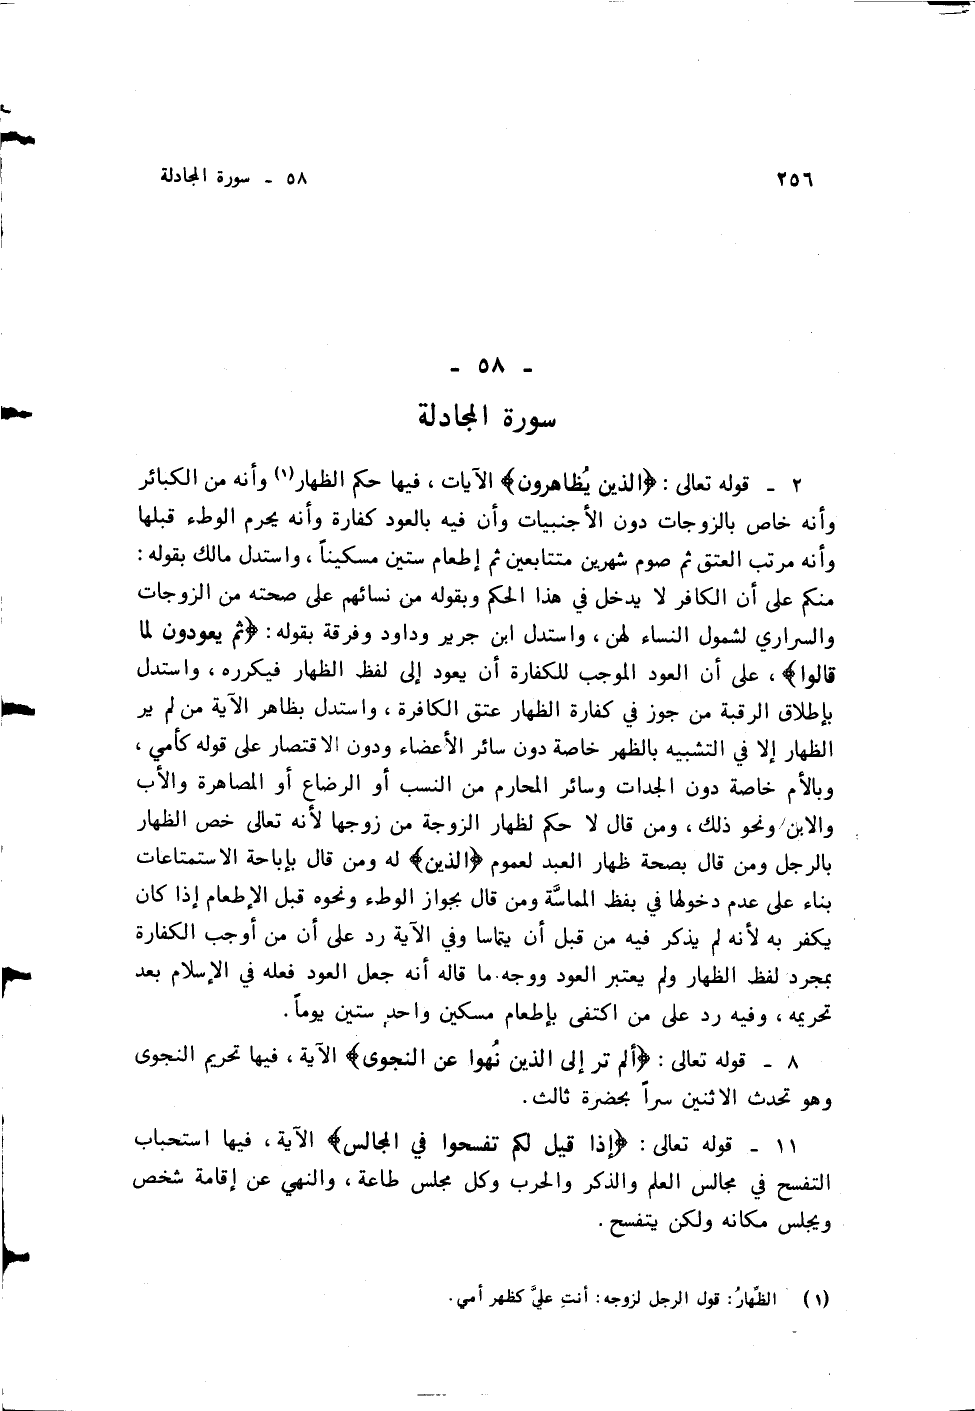 ٢٥٦
٥٨ - سورة المجادلة
- ٥٨ -
سورة المجادلة
٢ - قوله تعالى : ﴿الذين يُظاهرون﴾ الآيات ، فيها حكم الظهار(١) وأنه من الكبائر
وأنه خاص بالزوجات دون الأجنبيات وأن فيه بالعود كفارة وأنه يحرم الوطء قبلها
وأنه مرتب العتق ثم صوم شهرين متتابعين ثم إطعام ستين مسكيناً ، واستدل مالك بقوله :
منكم على أن الكافر لا يدخل في هذا الحكم وبقوله من نسائهم على صحته من الزوجات
والسراري لشمول النساء لهن ، واستدل ابن جرير وداود وفرقة بقوله : ﴿ثم يعودون لما
قالوا﴾ ، على أن العود الموجب للكفارة أن يعود إلى لفظ الظهار فيكرره ، واستدل
بإطلاق الرقبة من جوز في كفارة الظهار عتق الكافرة ، واستدل بظاهر الآية من لم ير
الظهار إلا في التشبيه بالظهر خاصة دون سائر الأعضاء ودون الاقتصار على قوله كأمي ،
وبالأم خاصة دون الجدات وسائر المحارم من النسب أو الرضاع أو المصاهرة والأب
والابن/ونحو ذلك ، ومن قال لا حكم لظهار الزوجة من زوجها لأنه تعالى خص الظهار
بالرجل ومن قال بصحة ظهار العبد لعموم ﴿الذين﴾ له ومن قال بإباحة الاستمتاعات
بناء على عدم دخولها في بفظ المماسَّة ومن قال بجواز الوطء ونحوه قبل الإطعام إذا كان
يكفر به لأنه لم يذكر فيه من قبل أن يتماسا وفي الآية رد على أن من أوجب الكفارة
بمجرد لفظ الظهار ولم يعتبر العود ووجه ما قاله أنه جعل العود فعله في الإسلام بعد
تحريمه ، وفيه رد على من اكتفى بإطعام مسكين واحدٍ ستين يوماً .
٨ - قوله تعالى : ﴿ألم تر إلى الذين نُهوا عن النجوى﴾ الآية ، فيها تحريم النجوى
وهو تحدث الاثنين سراً بحضرة ثالث .
١١ - قوله تعالى : ﴿إذا قيل لكم تفسحوا في المجالس﴾ الآية ، فيها استحباب
التفسح في مجالس العلم والذكر والحرب وكل مجلس طاعة ، والنهي عن إقامة شخص
ويجلس مكانه ولكن يتفسح .
(١) الظِّهارُ : قول الرجل لزوجه : أنتِ عليَّ كظهر أمي .